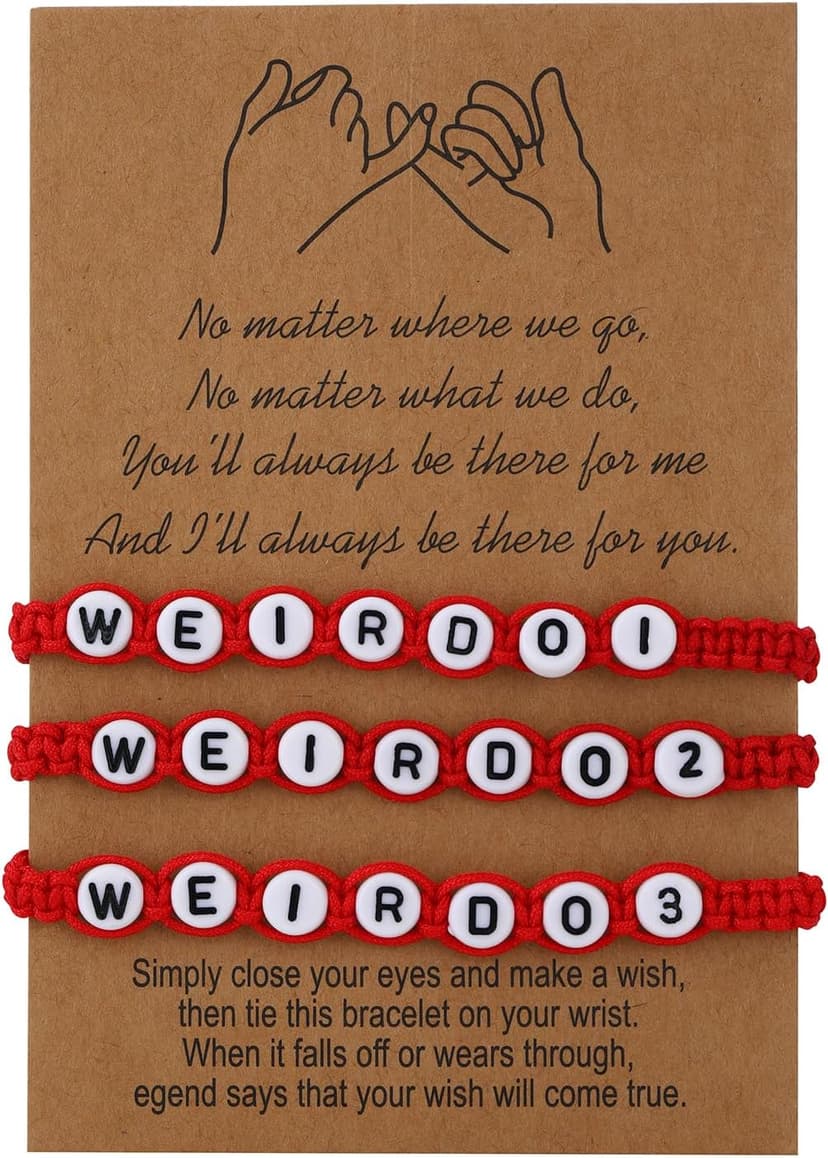 No matter where we go,
No matter what we do,
You'll always be there for me
And I'll always be there for you.
WEIRDO1
WEIRDO2
WEIRDO3
Simply close your eyes and make a wish,
then tie this bracelet on your wrist.
When it falls off or wears through,
egend says that your wish will come true.